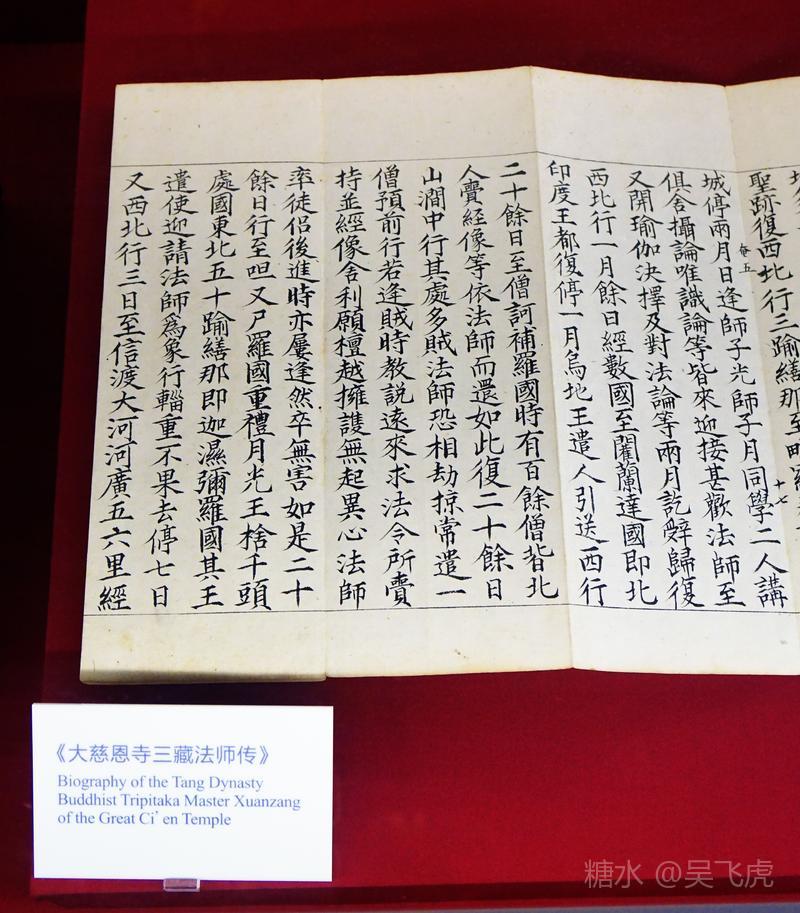 聖跡復西北行三踰繕那至毗羅
卷五 十七
城停兩月日逢師子光師子月同學二人講
俱舍攝論唯識論等皆來迎接甚歡法師至
又開瑜伽決擇及對法論等兩月訖辭歸復
西北行一月餘日經數國至闍蘭達國即北
印度王都復停一月烏地王遣人引送西行
二十餘日至僧訶補羅國時有百餘僧皆北
人賷經像等依法師而還如此復二十餘日
山澗中行其處多賊法師恐相劫掠常遣一
僧預前行若逢賊時教說遠來求法令所賷
持並經像舍利願檀越擁護無起異心法師
率徒侶後進時亦屢逢然卒無害如是二十
餘日行至呾又尸羅國重禮月光王捨千頭
處國東北五十踰繕那即迦濕彌羅國其王
遣使迎請法師爲象行輜重不果去停七日
又西北行三日至信渡大河河廣五六里經
《大慈恩寺三藏法师传》
Biography of the Tang Dynasty
Buddhist Tripitaka Master Xuanzang
of the Great Ci' en Temple
糖水 @吴飞虎